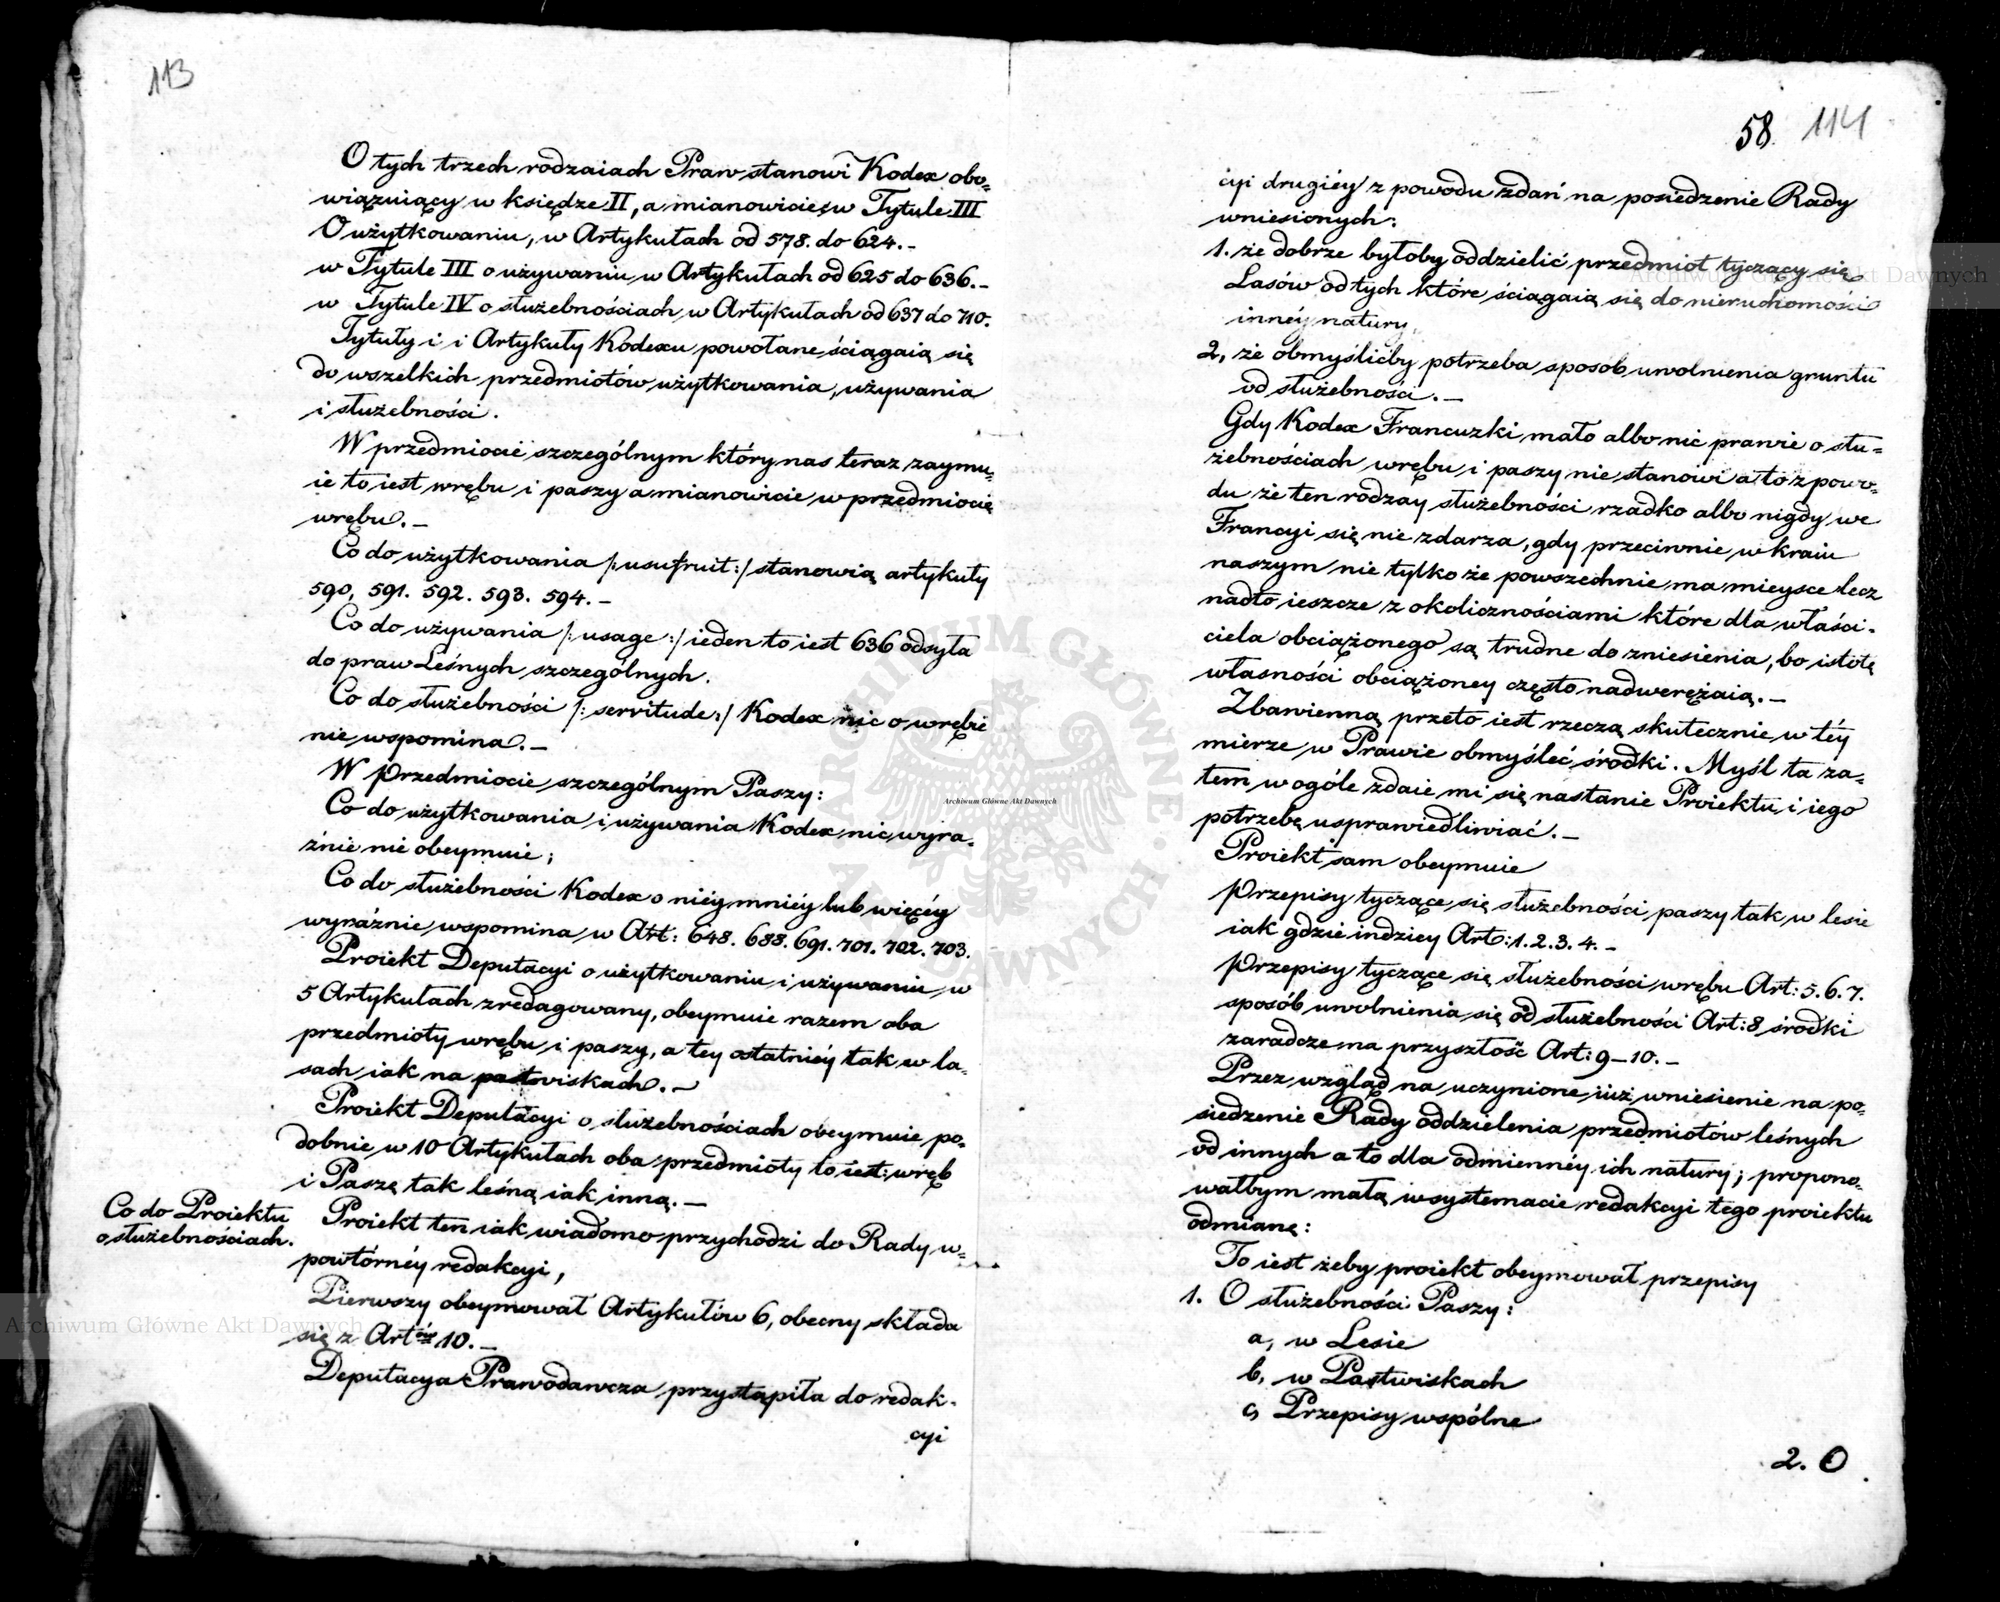 113
O tych trzech rodzaiach Praw stanowi Kodex obo=
wiązuiący w księdze II, a mianowicie w Tytule III
O użytkowaniu, w Artykułach od 578. do 624. –
w Tytule III o używaniu w Artykułach od 625 do 636. –
w Tytule IV o służebnościach w Artykułach od 637 do 710.
Tytuły i i Artykuły Kodexu powołane ściągaią się
do wszelkich przedmiotów użytkowania, używania
i służebności.
W przedmiocie szczególnym który nas teraz zaymu=
ie to iest wrębu i paszy a mianowicie w przedmiocie
wrębu. –
Co do użytkowania /: usufruit :/ stanowią artykuły
590, 591. 592. 593. 594. –
Co do używania /: usage :/ ieden to iest 636 odsyła
do praw Leśnych szczególnych.
Co do służebności /: servitude :/ Kodex nic o wrębie
nie wspomina. –
W przedmiocie szczególnym Paszy:
Co do użytkowania i używania Kodex nic wyra=
źnie nie obeymuie;
Co do służebności Kodex o niéy mniéy lub więcéy
wyraźnie wspomina w Art: 648. 688. 691. 701. 702. 703.
Proiekt Deputacyi o użytkowaniu i używaniu w
5 Artykułach zredagowany, obeymuie razem oba
przedmioty wrębu i paszy, a tey ostatniéy tak w la=
sach iak na pastwiskach. –
Proiekt Deputacyi o służebnościach obeymuie po=
dobnie w 10 Artykułach oba przedmioty to iest: wręb
i Paszę tak leśną iak inną. –
Co do Proiektu
o służebnościach.
Proiekt ten iak wiadomo przychodzi do Rady w=
powtórnéy redakcyi,
Pierwszy obeymował Artykułów 6, obecny składa
się z Art 10. –
Deputacya Prawodawcza przystąpiła do redak=
cyi
58. 114
cyi drugiéy z powodu zdań na posiedzenie Rady
wniesionych:
1. że dobrze byłoby oddzielić przedmiot tyczący się
Lasów od tych które ściągaią się do nieruchomości
innéy natury,
2, że obmyślićby potrzeba sposób uwolnienia gruntu
od służebności. –
Gdy Kodex Francuzki mało albo nic prawie o słu=
żebnościach wrębu i paszy nie stanowi a to z powo=
du że ten rodzay służebności rzadko albo nigdy we
Francyi się nie zdarza, gdy przeciwnie w kraiu
naszym nie tylko że powszechnie ma mieysce lecz
nadto ieszcze z okolicznościami które dla właści=
ciela obciążonego są trudne do zniesienia, bo istotę
własności obciążoney często nadwerężaią. –
Zbawienną przeto iest rzeczą skutecznie w téy
mierze w Prawie obmyśleć środki. Myśl ta za=
tem w ogóle zdaie mi się nastanie Proiektu i iego
potrzebę usprawiedliwiać. –
Proiekt sam obeymuie
Przepisy tyczące się służebności paszy tak w lesie
iak gdzie indziey Art: 1. 2. 3. 4. –
Przepisy tyczące się służebności wrębu Art: 5. 6. 7.
sposób uwolnienia się od służebności Art: 8 środki
zaradcze na przyszłość Art: 9 – 10. –
Przez wzgląd na uczynione iuż wniesienie na po=
siedzenie Rady oddzielenia przedmiotów leśnych
od innych a to dla odmiennéy ich natury; propono=
wałbym małą w systemacie redakcyi tego proiektu
odmianę:
To iest żeby proiekt obeymował przepisy
1. O służebności Paszy:
a, w Lesie
b, w Pastwiskach
c, Przepisy wspólne
2. O
Archiwum Główne Akt Dawnych
Archiwum Główne Akt Dawnych
Archiwum Główne Akt Dawnych
ARCHIWUM GŁÓWNE AKT DAWNYCH